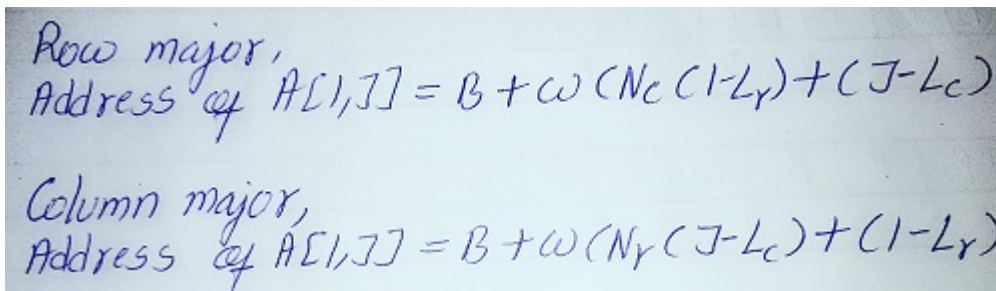 Row major,
Address of A[I,J] = B + ω (Nc (I-Lr) + (J-Lc)
Column major,
Address of A[I,J] = B + ω (Nr (J-Lc) + (I-Lr)